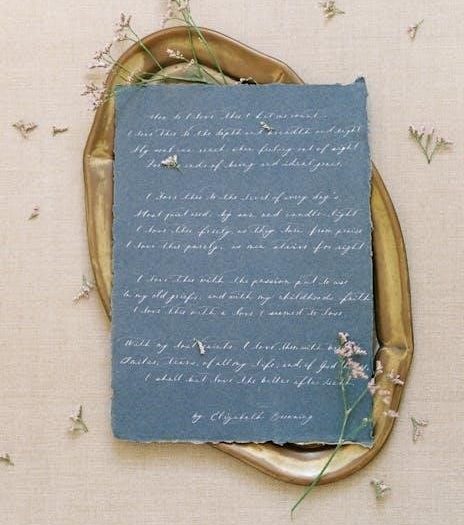 How do I love thee? Let me count
I love thee to the depth and breadth and height
My soul can reach, when feeling out of sight
ends of being and ideal grace.
I love thee to the level of every day's
Most quiet need, by sun and candle-light
I love thee freely, as they turn from praise
I love thee purely, as men strive for right
I love thee with the passion put to use
In my old griefs, and with my childhoods faith
I love thee with a love I seemed to lose
With my lost saints. I love thee with
Smiles, tears, of all my life, and if God
I shall but love thee better after death
by Elizabeth Browning